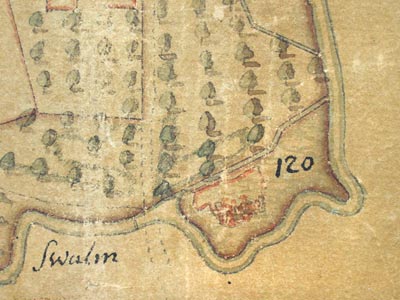 120
Swalm